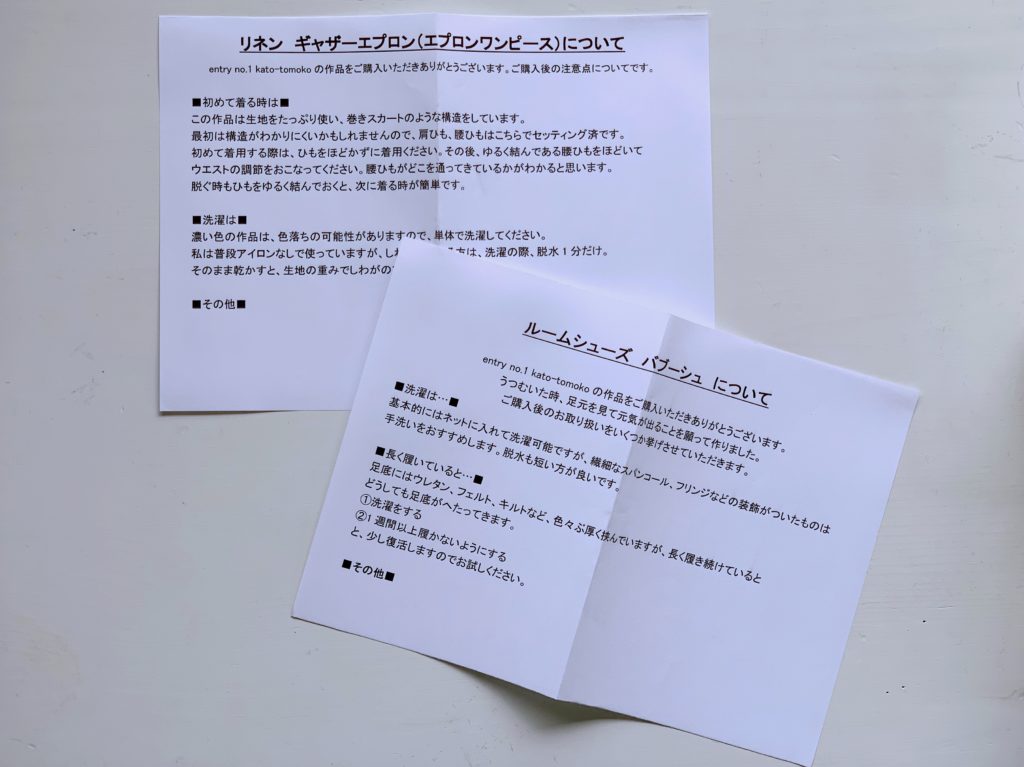 リネン ギャザーエプロン（エプロンワンピース）について
entry no.1 kato-tomoko の作品をご購入いただきありがとうございます。ご購入後の注意点についてです。
■初めて着る時は■
この作品は生地をたっぷり使い、巻きスカートのような構造をしています。
最初は構造がわかりにくいかもしれませんので、肩ひも、腰ひもはこちらでセッティング済です。
初めて着用する際は、ひもをほどかずに着用ください。その後、ゆるく結んである腰ひもをほどいて
ウエストの調節をおこなってください。腰ひもがどこを通ってきているかがわかると思います。
脱ぐ時もひもをゆるく結んでおくと、次に着る時が簡単です。
■洗濯は■
濃い色の作品は、色落ちの可能性がありますので、単体で洗濯してください。
私は普段アイロンなしで使っていますが、しわ る方は、洗濯の際、脱水1分だけ。
そのまま乾かすと、生地の重みでしわがの
■その他■
ルームシューズ バブーシュ について
entry no.1 kato-tomoko の作品をご購入いただきありがとうございます。
うつむいた時、足元を見て元気が出ることを願って作りました。
ご購入後のお取り扱いをいくつか挙げさせていただきます。
■洗濯は…■
基本的にはネットに入れて洗濯可能ですが、繊細なスパンコール、フリンジなどの装飾がついたものは
手洗いをおすすめします。脱水も短い方が良いです。
■長く履いていると…■
足底にはウレタン、フェルト、キルトなど、色々ぶ厚く挟んでいますが、長く履き続けていると
どうしても足底がへたってきます。
①洗濯をする
②1週間以上履かないようにする
と、少し復活しますのでお試しください。
■その他■